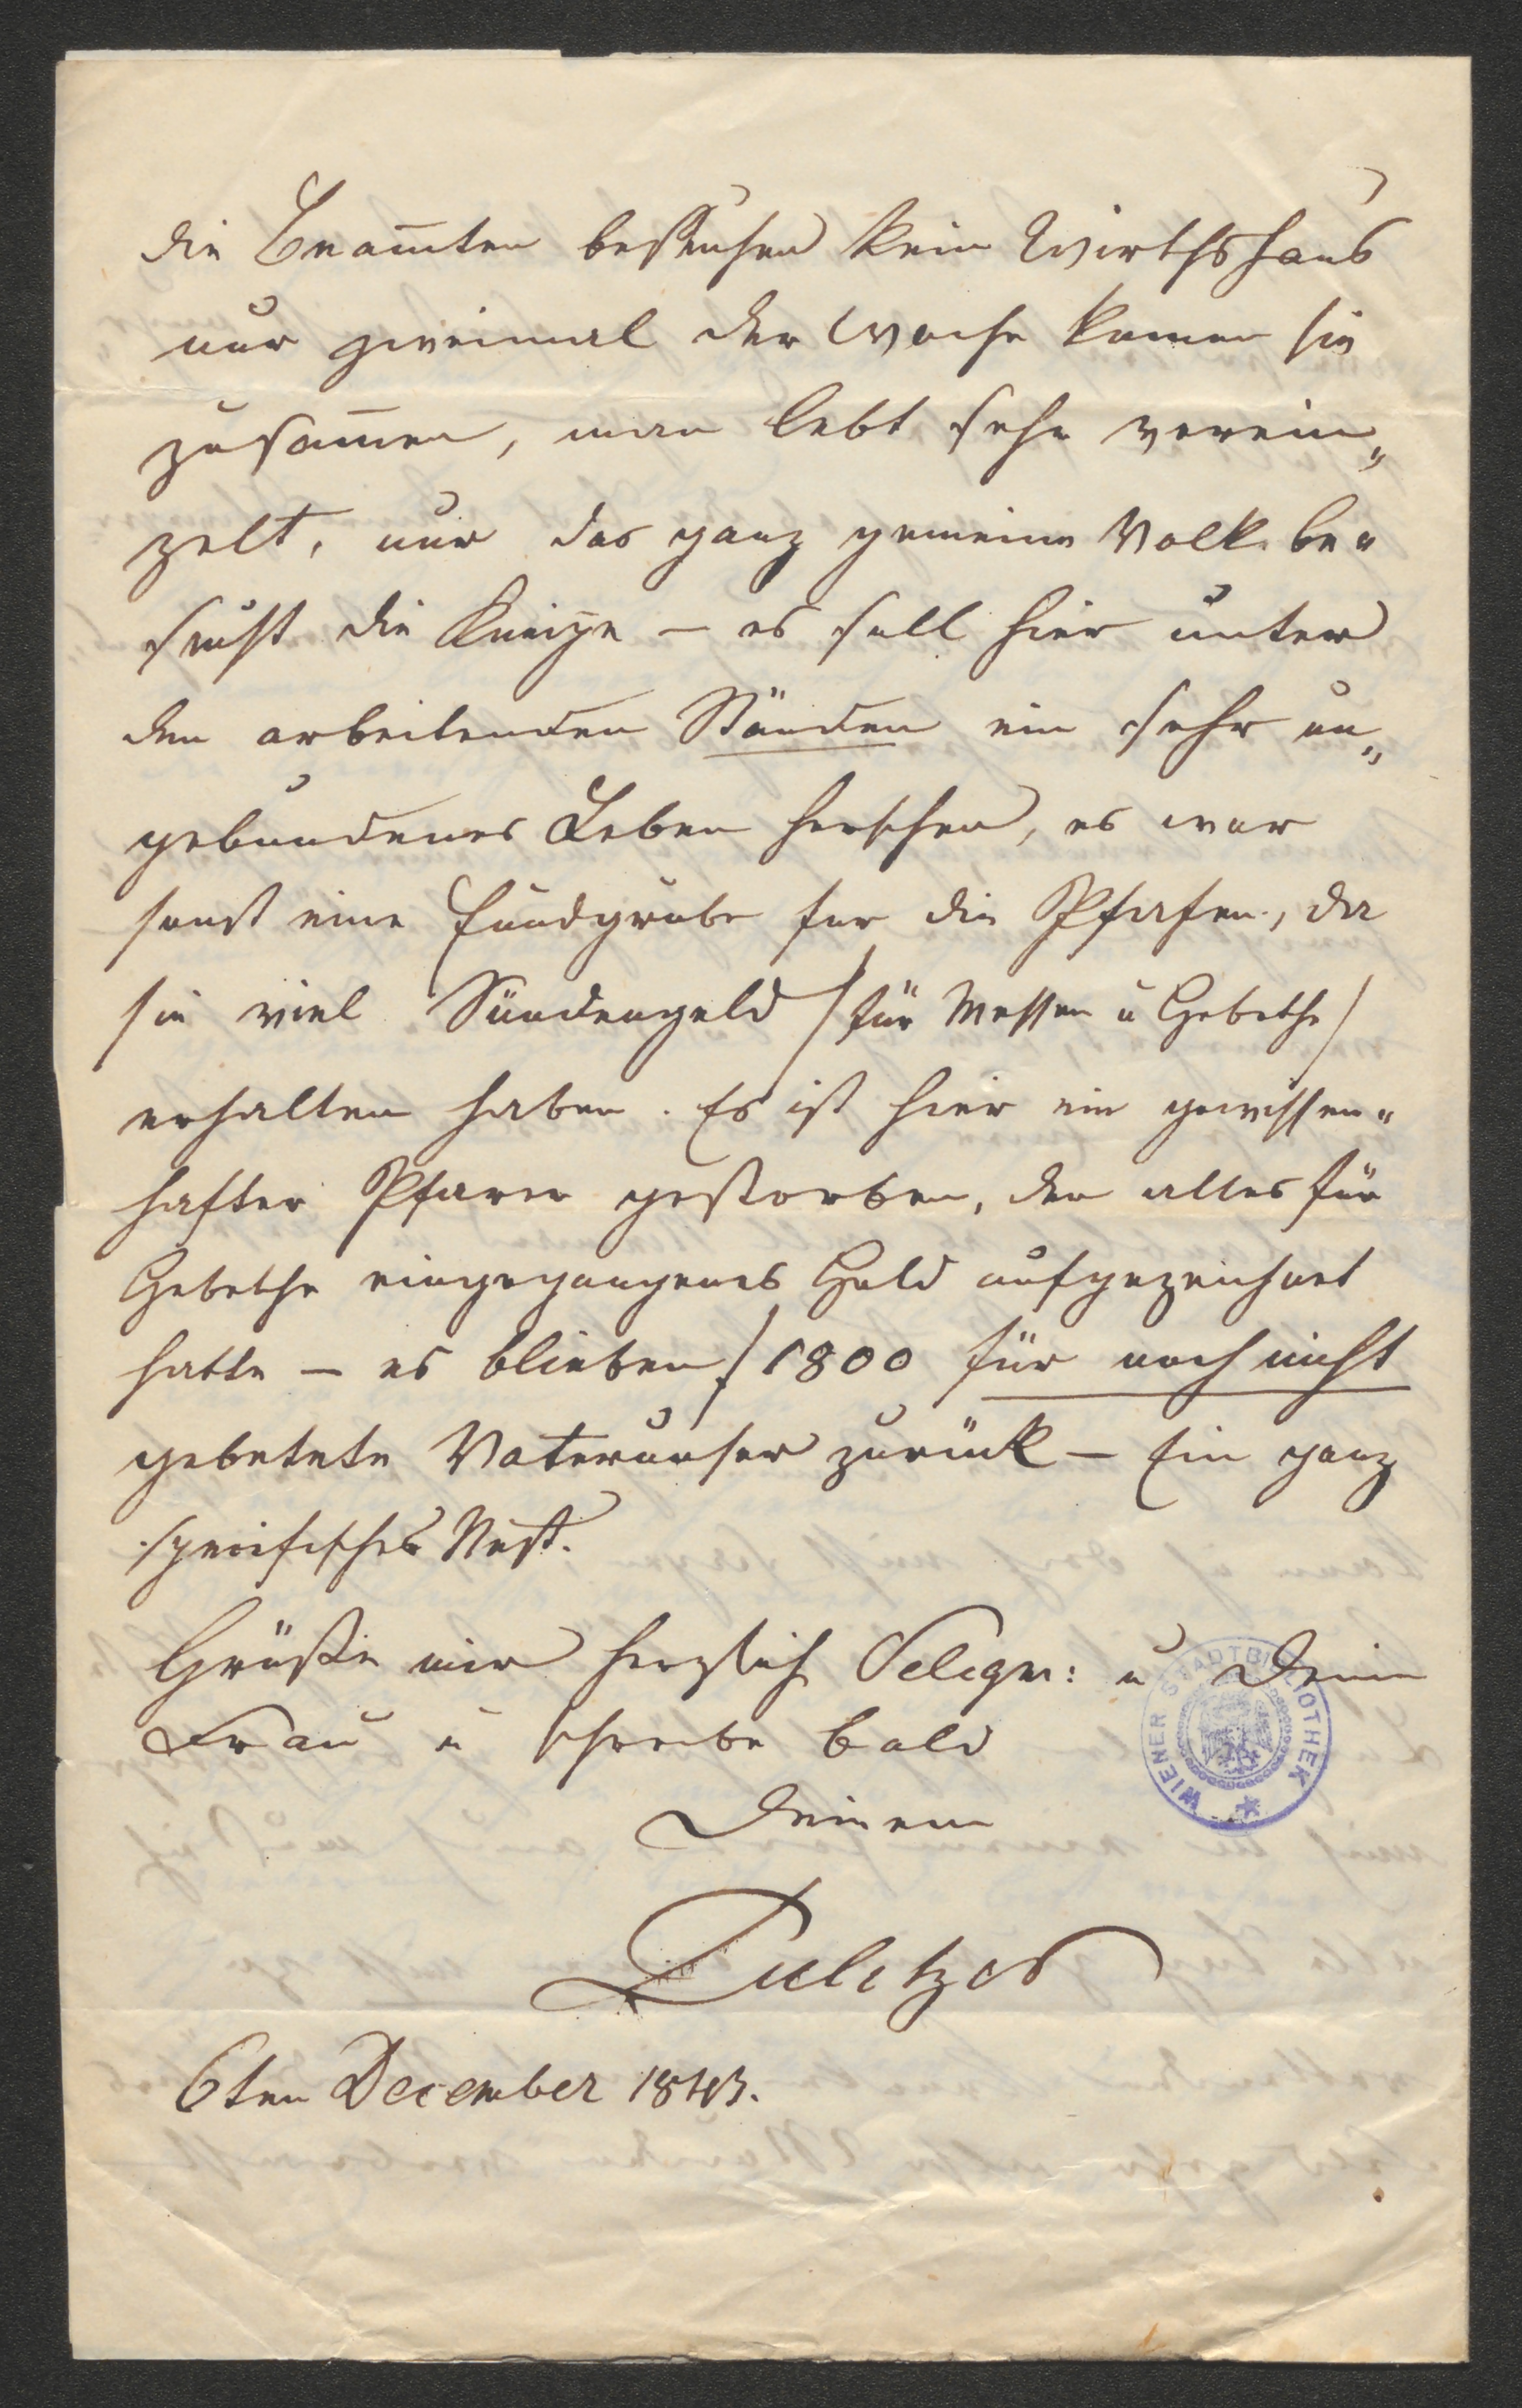 die Beam̄ten besuchen kein Wirthshaus
nur zweimal der Woche kamen sie
zusam̄en, man lebt sehr verein„
zelt, nur das ganz gemeine Volk be„
sucht die Kneipe – es soll hier unter
den arbeitenden Ständen ein sehr un„
gebundenes Leben herschen, es war
sonst eine Fundgrube fur die Pfafen, da
sie viel Sündengeld /für Messen u Gebethe/
erhalten haben. Es ist hier ein gewissen„
hafter Pfarer gestorben, der alles für
Gebethe eingegangenes Geld aufgezeichnet
hatte – es blieben f 1800 für noch nicht
gebetete Vaterunser zurück – Ein ganz
specifisches Nest.
Grüße mir herzlich Seligm: u Deine
Frau u schreibe bald
Deinem
Pulitzer
6ten December 1843.
WIENER STADTBIBLIOTHEK